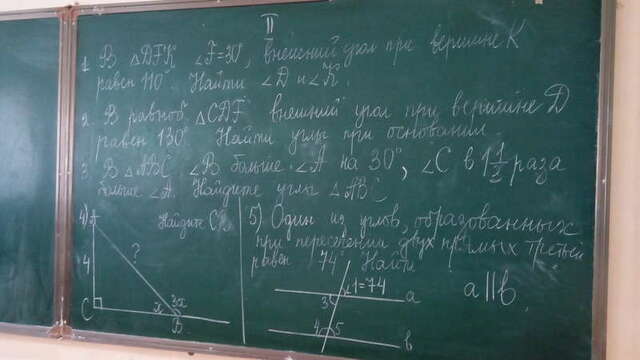 II
1. В △DFK ∠F=30°, внешний угол при вершине K
равен 110°. Найти ∠D и ∠K.
2. В равноб. △CDF внешний угол при вершине D
равен 130°. Найти углы при основании.
3. В △ABC ∠B больше ∠A на 30°, ∠C в 1 1/2 раза
больше ∠A. Найдите углы △ABC
4) A
Найдите
4
?
C
x
3x
B
5) Один из углов, образованных
при пересечении двух прямых третьей
равен 74° Найти
∠1=74
a
3
4
5
b
a||b